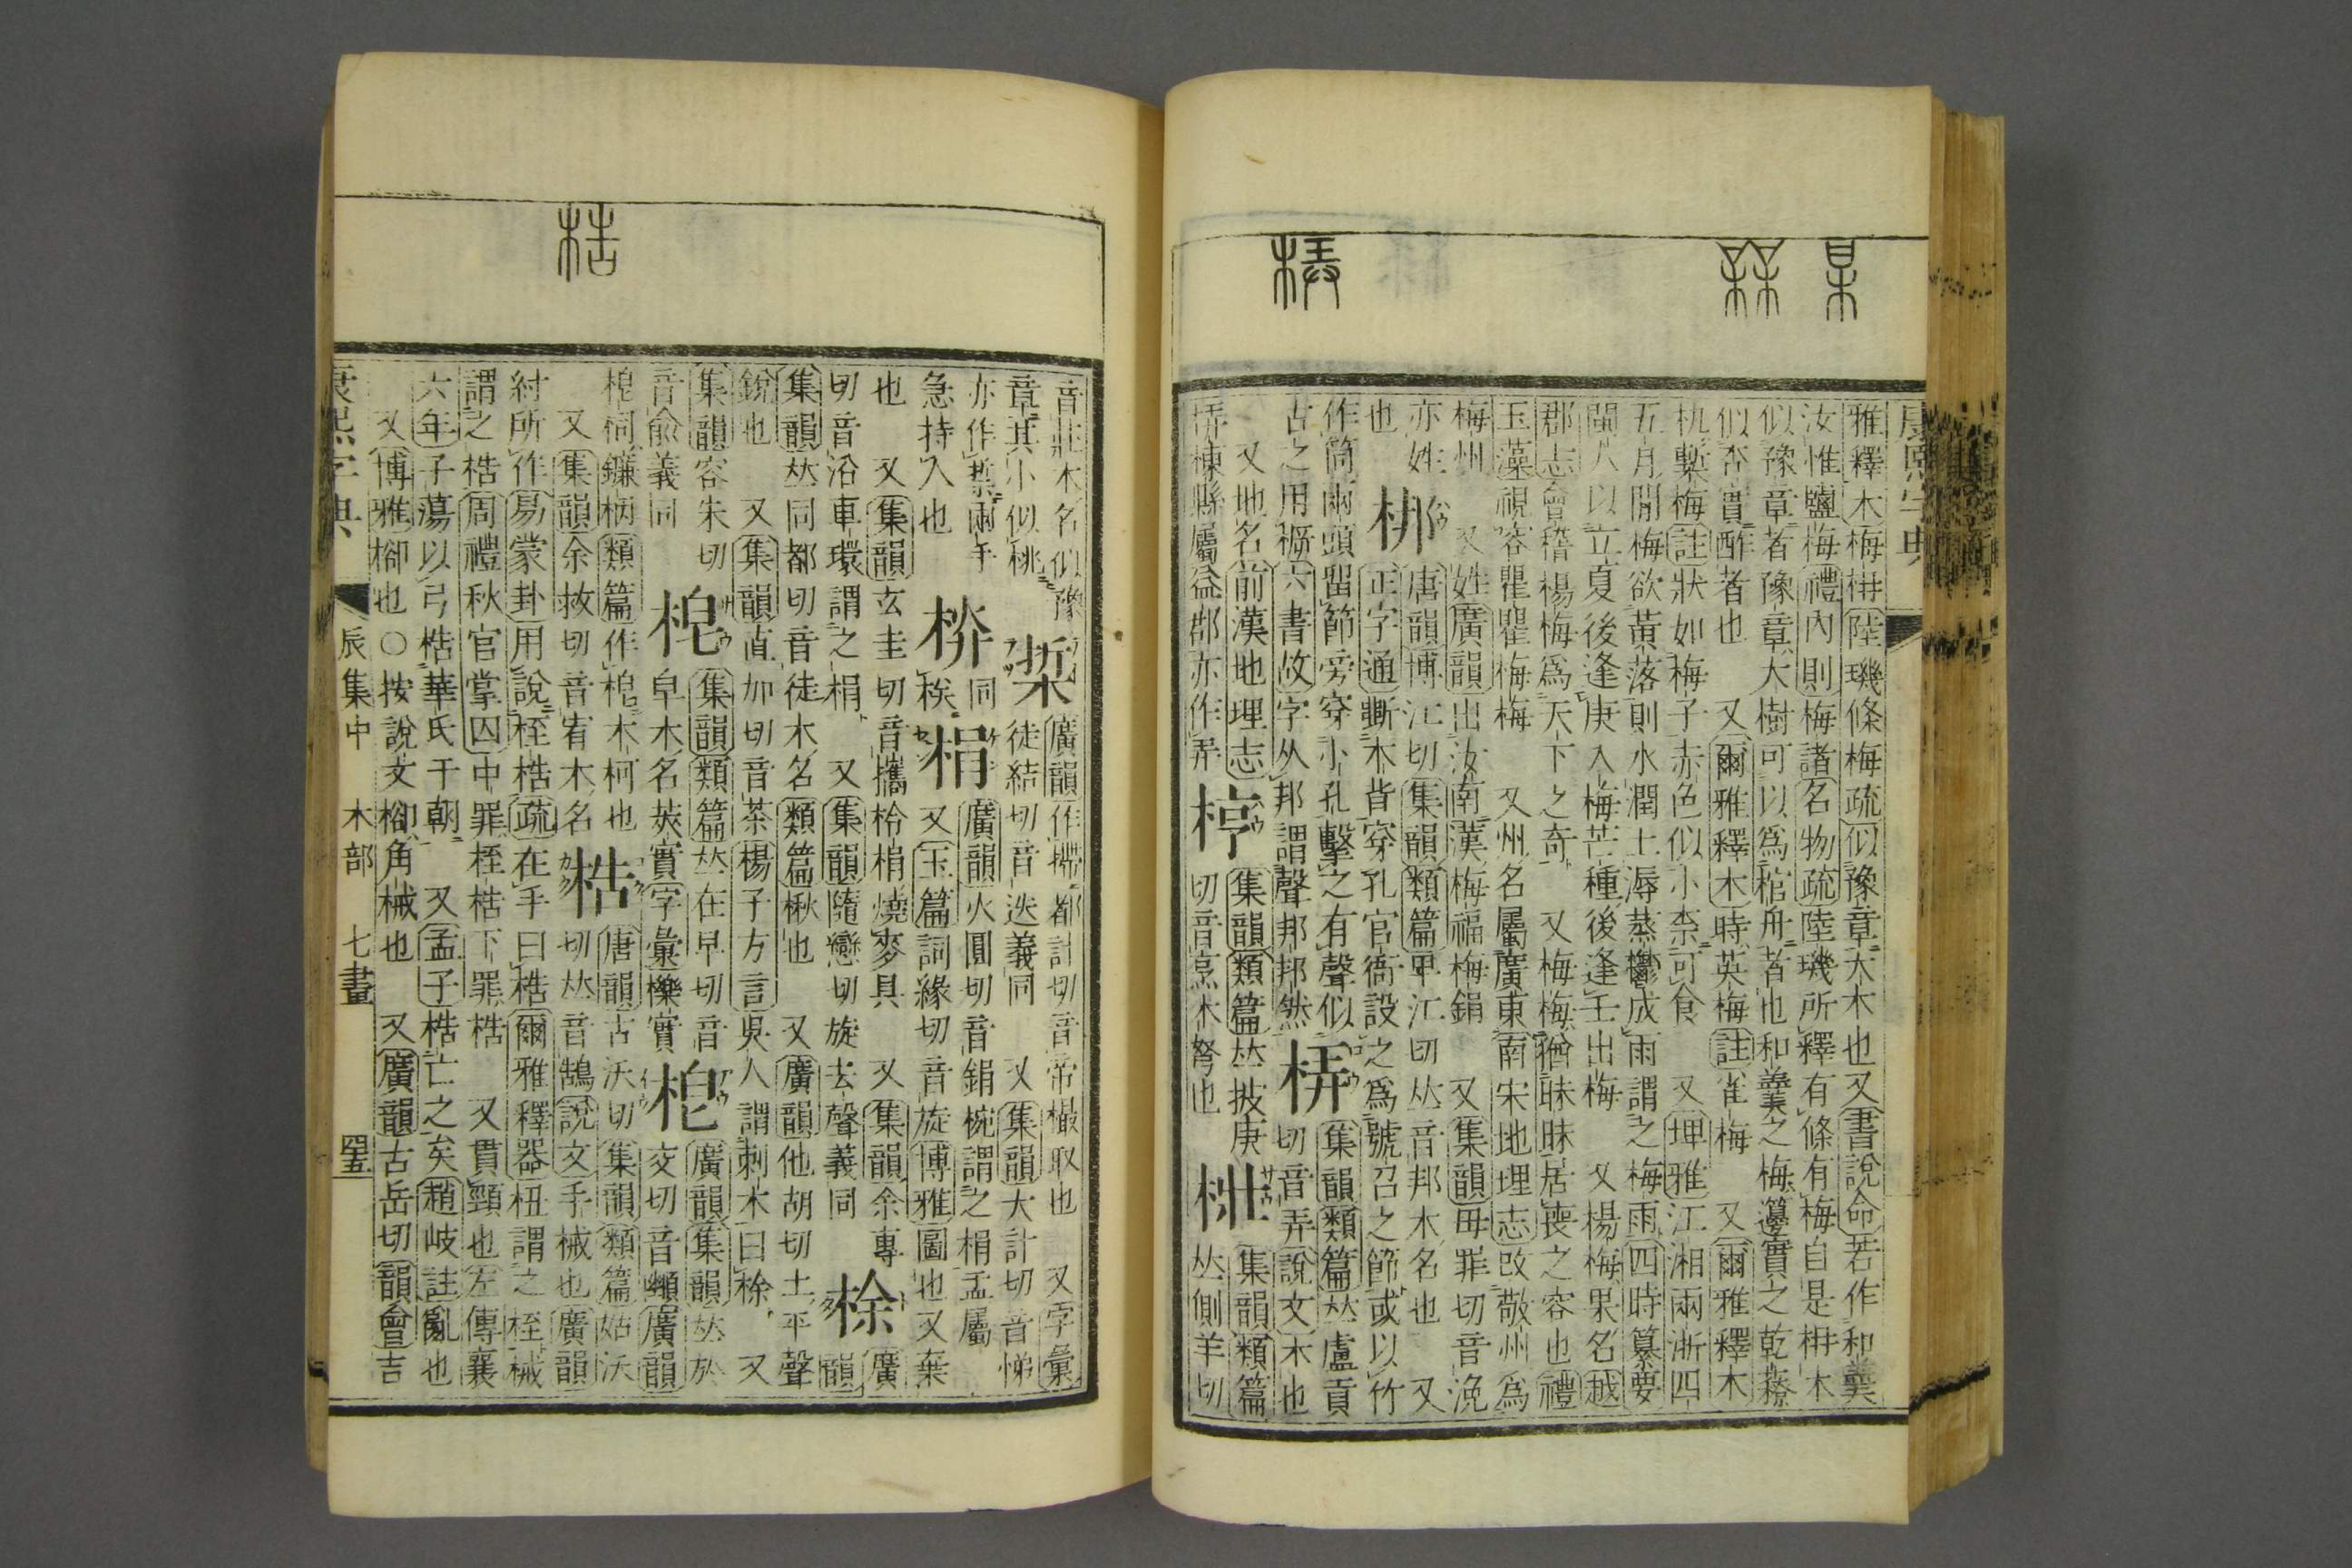 康熙字典
雅釋木梅枏陸璣條梅疏似豫章大木也又書說命若作和羹
汝惟鹽梅禮內則梅諸名物疏陸璣所釋有條有梅自是枏木
似豫章者豫章大樹可以爲棺舟者也和羹之梅籩實之乾䕩
似杏實酢者也 又爾雅釋木時英梅註雀梅 又爾雅釋木
朹檕梅註狀如梅子赤色似小柰可食 又埤雅江湘兩浙四
五月閒梅欲黃落則水潤土溽蒸鬱成雨謂之梅雨四時纂要
閩人以立夏後逢庚入梅芒種後逢壬出梅 又楊梅果名越
郡志會稽楊梅爲天下之奇 又梅梅猶昧昧居喪之容也禮
玉藻視容瞿瞿梅梅 又州名屬廣東南宋地理志改敬州爲
梅州 又姓廣韻出汝南漢梅福梅鋗 又集韻毋罪切音浼
亦姓 唐韻博江切集韻類篇𤰞江切𠀤音邦木名也 又
也 梆 正字通斲木背穿孔官衙設之爲號召之節或以竹
作筒兩頭留節旁穿小孔擊之有聲似 集韻類篇𠀤盧貢
古之用檿六書故字从邦謂聲邦邦然 梇 切音弄說文木也
又地名前漢地理志 集韻類篇𠀤披庚 集韻類篇
梇棟縣屬益郡亦作弄 梈 切音烹木弩也 梉 𠀤側羊切
音莊木名似豫 廣韻作㨖都計切音帝撮取也 又字彙
章其小似桃 梊 徒結切音迭義同 又集韻大計切音悌
亦作㯂兩手 同 廣韻火圓切音鋗椀謂之梋盂屬
急持入也 桚 桵 梋 又玉篇詞緣切音旋博雅圖也又棄
也 又集韻玄圭切音攜柃梋燒麥具 又集韻余專 廣
切音沿車環謂之梋 又集韻隨戀切旋去聲義同 梌 韻
集韻𠀤同都切音徒木名類篇楸也 又廣韻他胡切土平聲
銳也 又集韻直加切音茶楊子方言吳人謂刺木曰梌 又
集韻容朱切 集韻類篇𠀤在早切音 廣韻集韻𠀤於
音兪義同 梍 皁木名莢實字彙櫟實 梎 交切音𧕎廣韻
梎柌鐮柄類篇作梎木柯也 唐韻古沃切集韻類篇姑沃
又集韻余救切音宥木名 梏 切𠀤音鵠說文手械也廣韻
紂所作易蒙卦用說桎梏疏在手曰梏爾雅釋器杻謂之桎械
謂之梏周禮秋官掌囚中罪桎梏下罪梏 又貫頸也左傳襄
六年子蕩以弓梏華氏于朝 又孟子梏亡之矣趙岐註亂也
又博雅㮝也○按說文㮝角械也 又廣韻古岳切韻會吉
康熙字典 辰集中 木部 七畫 四五